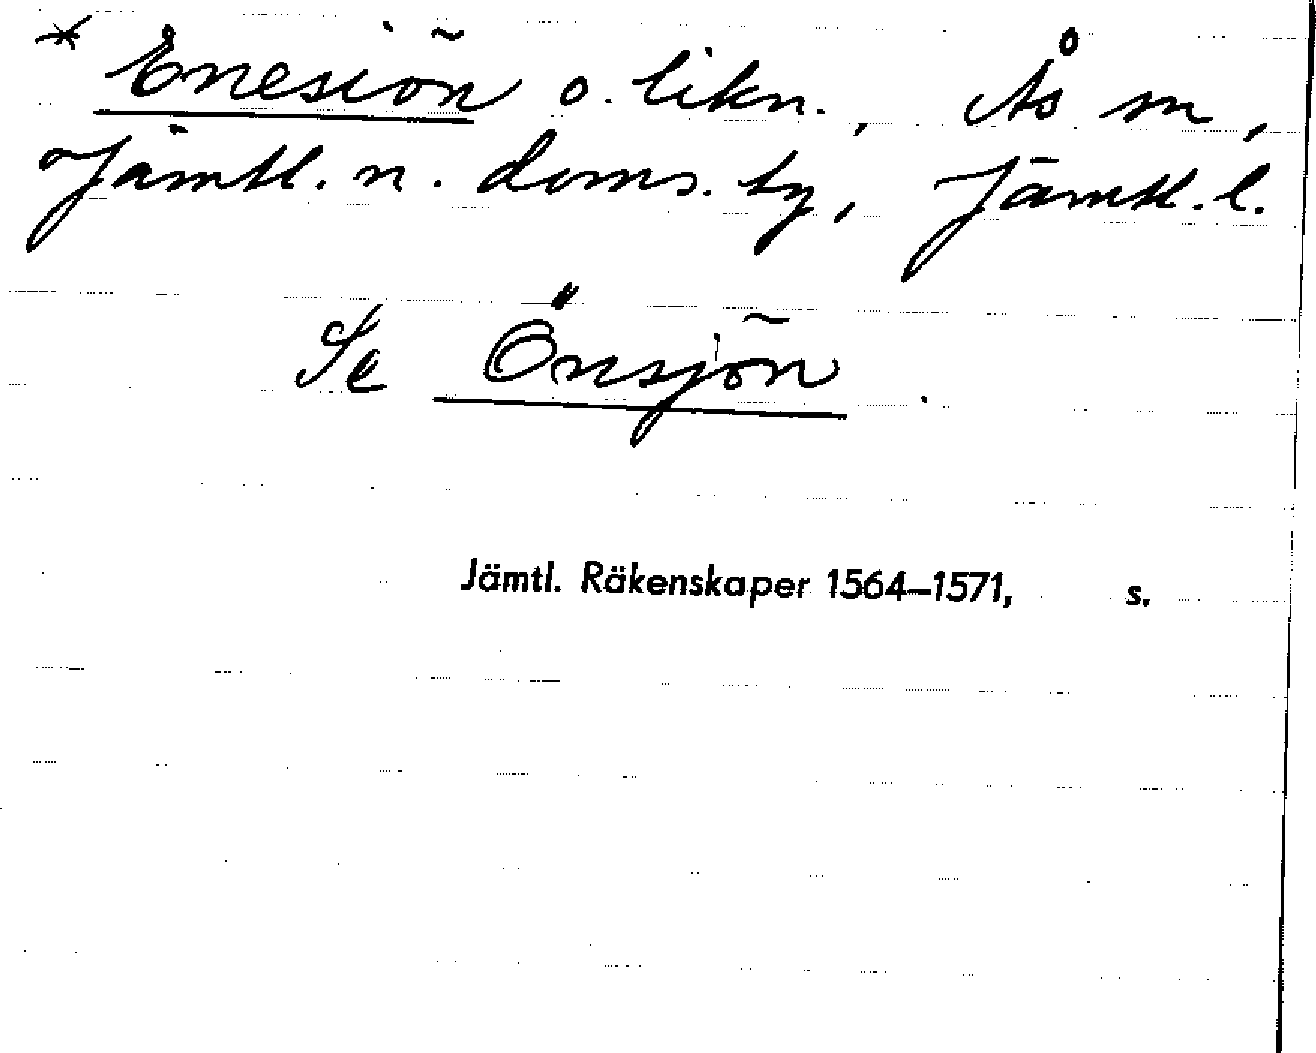 * Enesiön o. likn., Ås sn,
Jämtl. n. doms. tg, Jämtl. l.
Se Önsjön.
Jämtl. Räkenskaper 1564–1571, s.